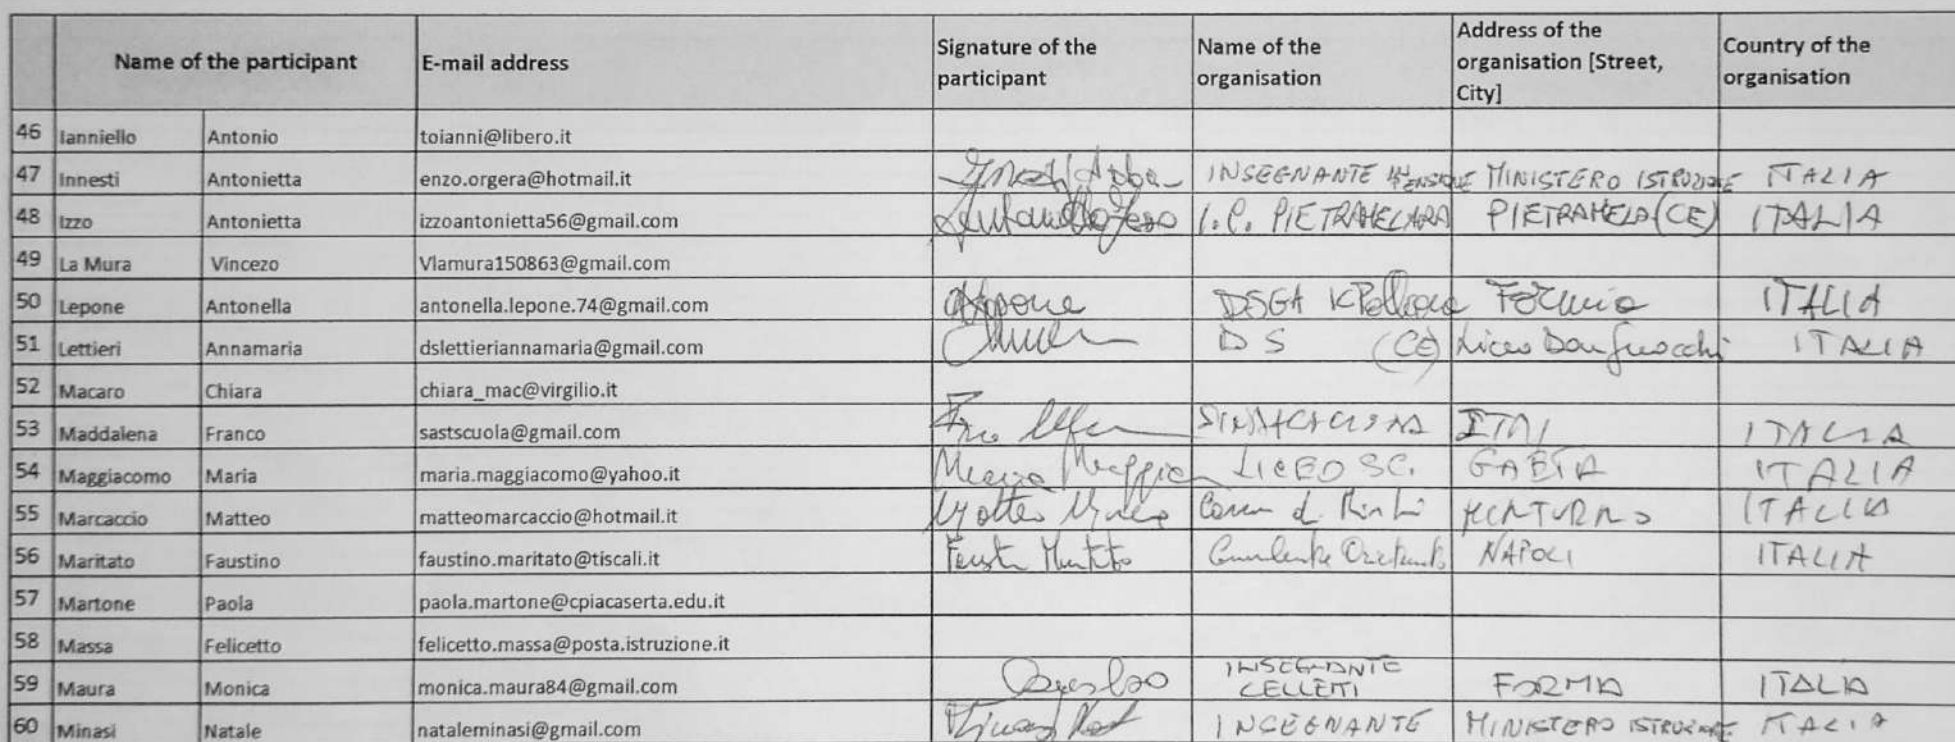 Name of the participant E-mail address Signature of the participant Name of the organisation Address of the organisation [Street, City] Country of the organisation
46 Ianniello Antonio toianni@libero.it
47 Innesti Antonietta enzo.orgera@hotmail.it INSEGNANTE MINISTERO ISTRUZIONE ITALIA
48 Izzo Antonietta izzoantonietta56@gmail.com I.C. PIETRAMELARA (CE) ITALIA
49 La Mura Vincezo Vlamura150863@gmail.com
50 Lepone Antonella antonella.lepone.74@gmail.com DSGA Formia ITALIA
51 Lettieri Annamaria dslettieriannamaria@gmail.com DS (CE) Liceo ITALIA
52 Macaro Chiara chiara_mac@virgilio.it
53 Maddalena Franco sastscuola@gmail.com ITALIA
54 Maggiacomo Maria maria.maggiacomo@yahoo.it Maria LICEO SC. GAETA ITALIA
55 Marcaccio Matteo matteomarcaccio@hotmail.it Matteo ITALIA
56 Maritato Faustino faustino.maritato@tiscali.it NAPOLI ITALIA
57 Martone Paola paola.martone@cpiacaserta.edu.it
58 Massa Felicetto felicetto.massa@posta.istruzione.it
59 Maura Monica monica.maura84@gmail.com INSEGNANTE CELLETTI ITALIA
60 Minasi Natale nataleminasi@gmail.com INSEGNANTE MINISTERO ISTRUZIONE ITALIA